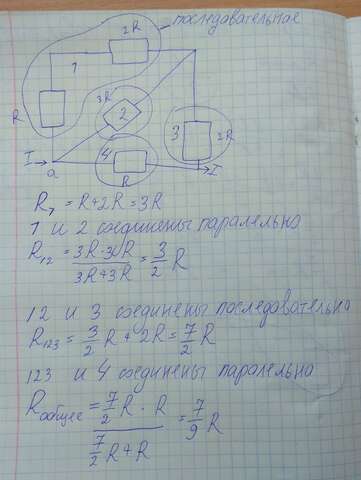 последовательное
2R
1
R
3R
2
3
2R
4
I
a
R
I
R₁ = R+2R = 3R
1 и 2 соединены паралельно
R₁₂ = 3R·3R / 3R+3R = 3/2 R
12 и 3 соединены последовательно
R₁₂₃ = 3/2 R + 2R = 7/2 R
123 и 4 соединены паралельно
R общее = 7/2 R · R / 7/2 R+R = 7/9 R